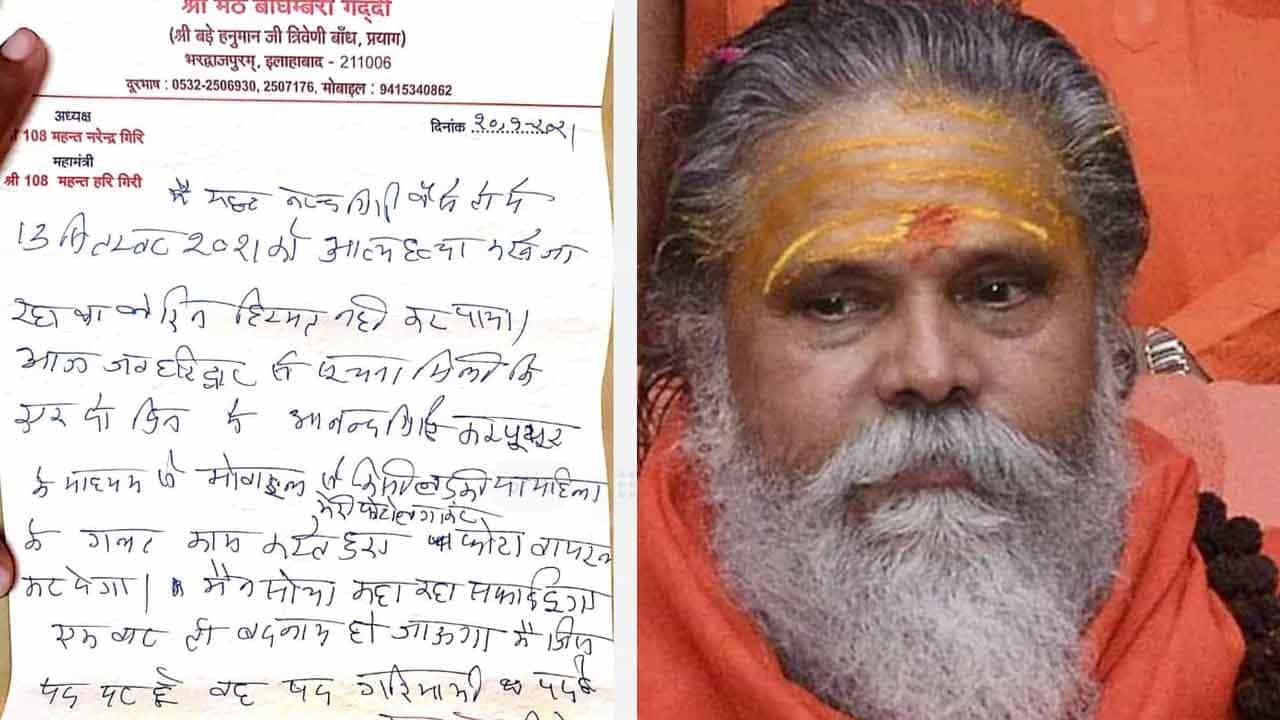 श्री मठ बाघम्बरी गद्दी
(श्री बड़े हनुमान जी त्रिवेणी बाँध, प्रयाग)
भरद्वाजपुरम्, इलाहाबाद - 211006
दूरभाष : 0532-2506930, 2507176, मोबाइल : 9415340862
अध्यक्ष
108 महन्त नरेन्द्र गिरि
महामंत्री
श्री 108 महन्त हरि गिरी
दिनांक
मै महन्त नरेन्द्र गिरि
13 सितम्बर २०२१ को आत्महत्या करने जा
रहा था लेकिन हिम्मत नही कर पाया।
आज जब हरिद्वार से सूचना मिली कि
एक दो दिन मे आनन्द गिरि कम्प्यूटर
के माध्यम से मोबाइल से किसी लड़की या महिला
मेरी फोटो लगाकर
के गलत काम करते हुए फोटो वायरल
कर देगा। मैने सोचा कहा तक सफाई दूंगा
एक बार तो बदनाम हो जाऊगा मै जिस
पद पर हूँ वह पद गरिमामयी पद है